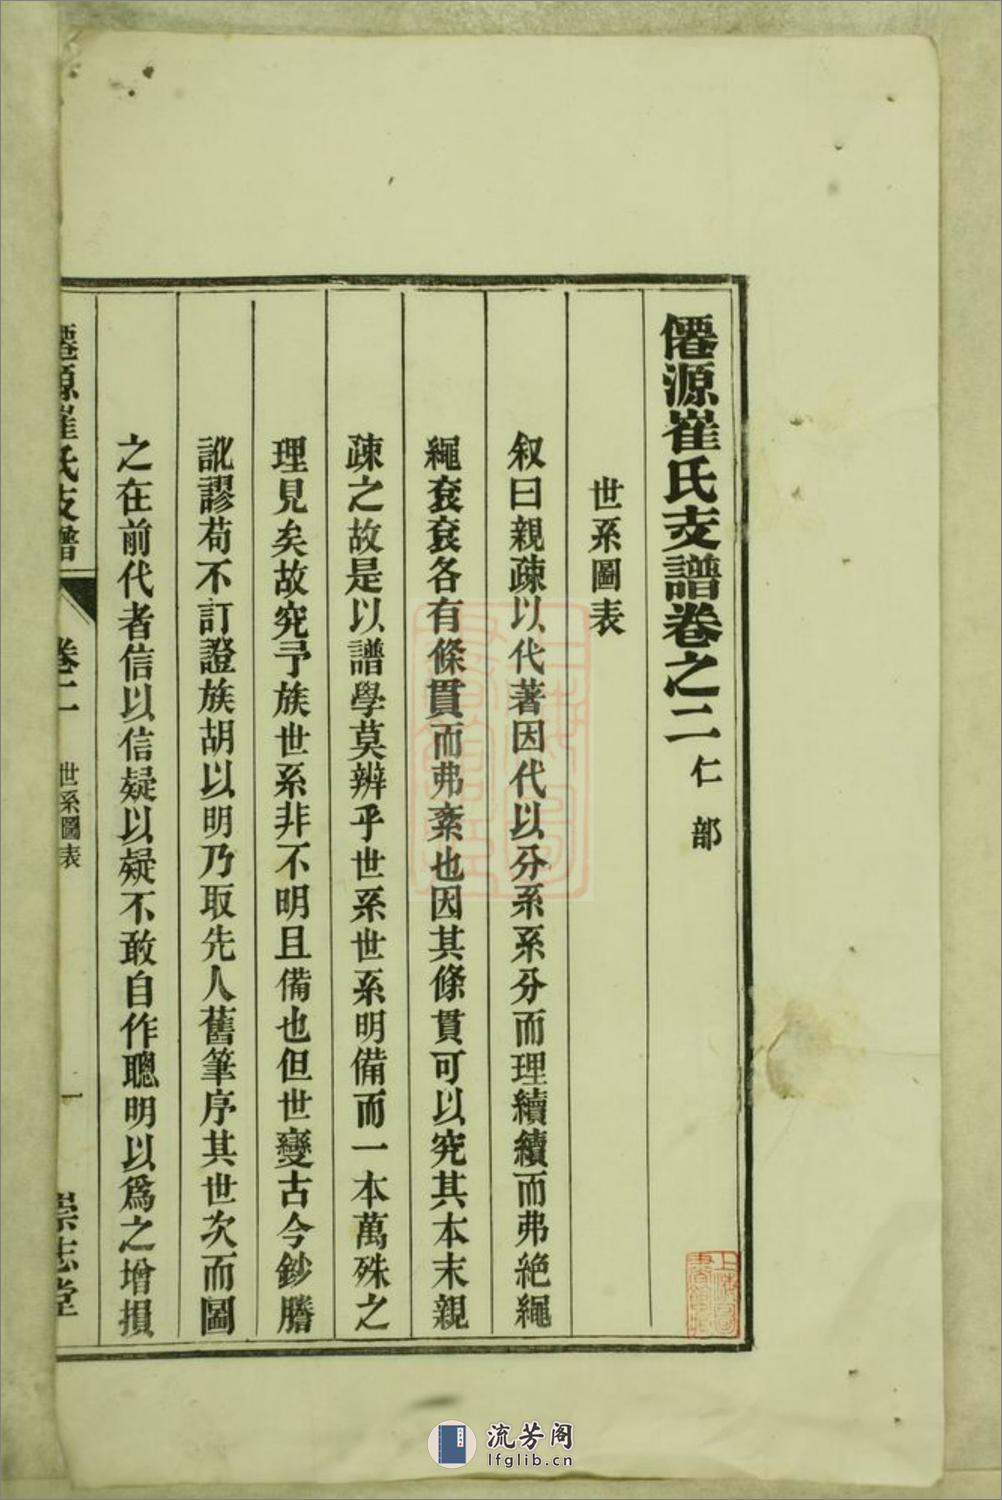 僊源崔氏支譜卷之二 仁部
世系圖表
叙曰親疎以代著因代以分系系分而理續續而弗絶繩
繩衮衮各有條貫而弗紊也因其條貫可以究其本末親
疎之故是以譜學莫辨乎世系世系明備而一本萬殊之
理見矣故究予族世系非不明且備也但世變古今鈔謄
訛謬苟不訂證族胡以明乃取先人舊筆序其世次而圖
之在前代者信以信疑以疑不敢自作聰明以爲之增損
僊源崔氏支譜 卷二 世系圖表 一 崇志堂
上海圖書館藏
流芳阁
lfglib.cn